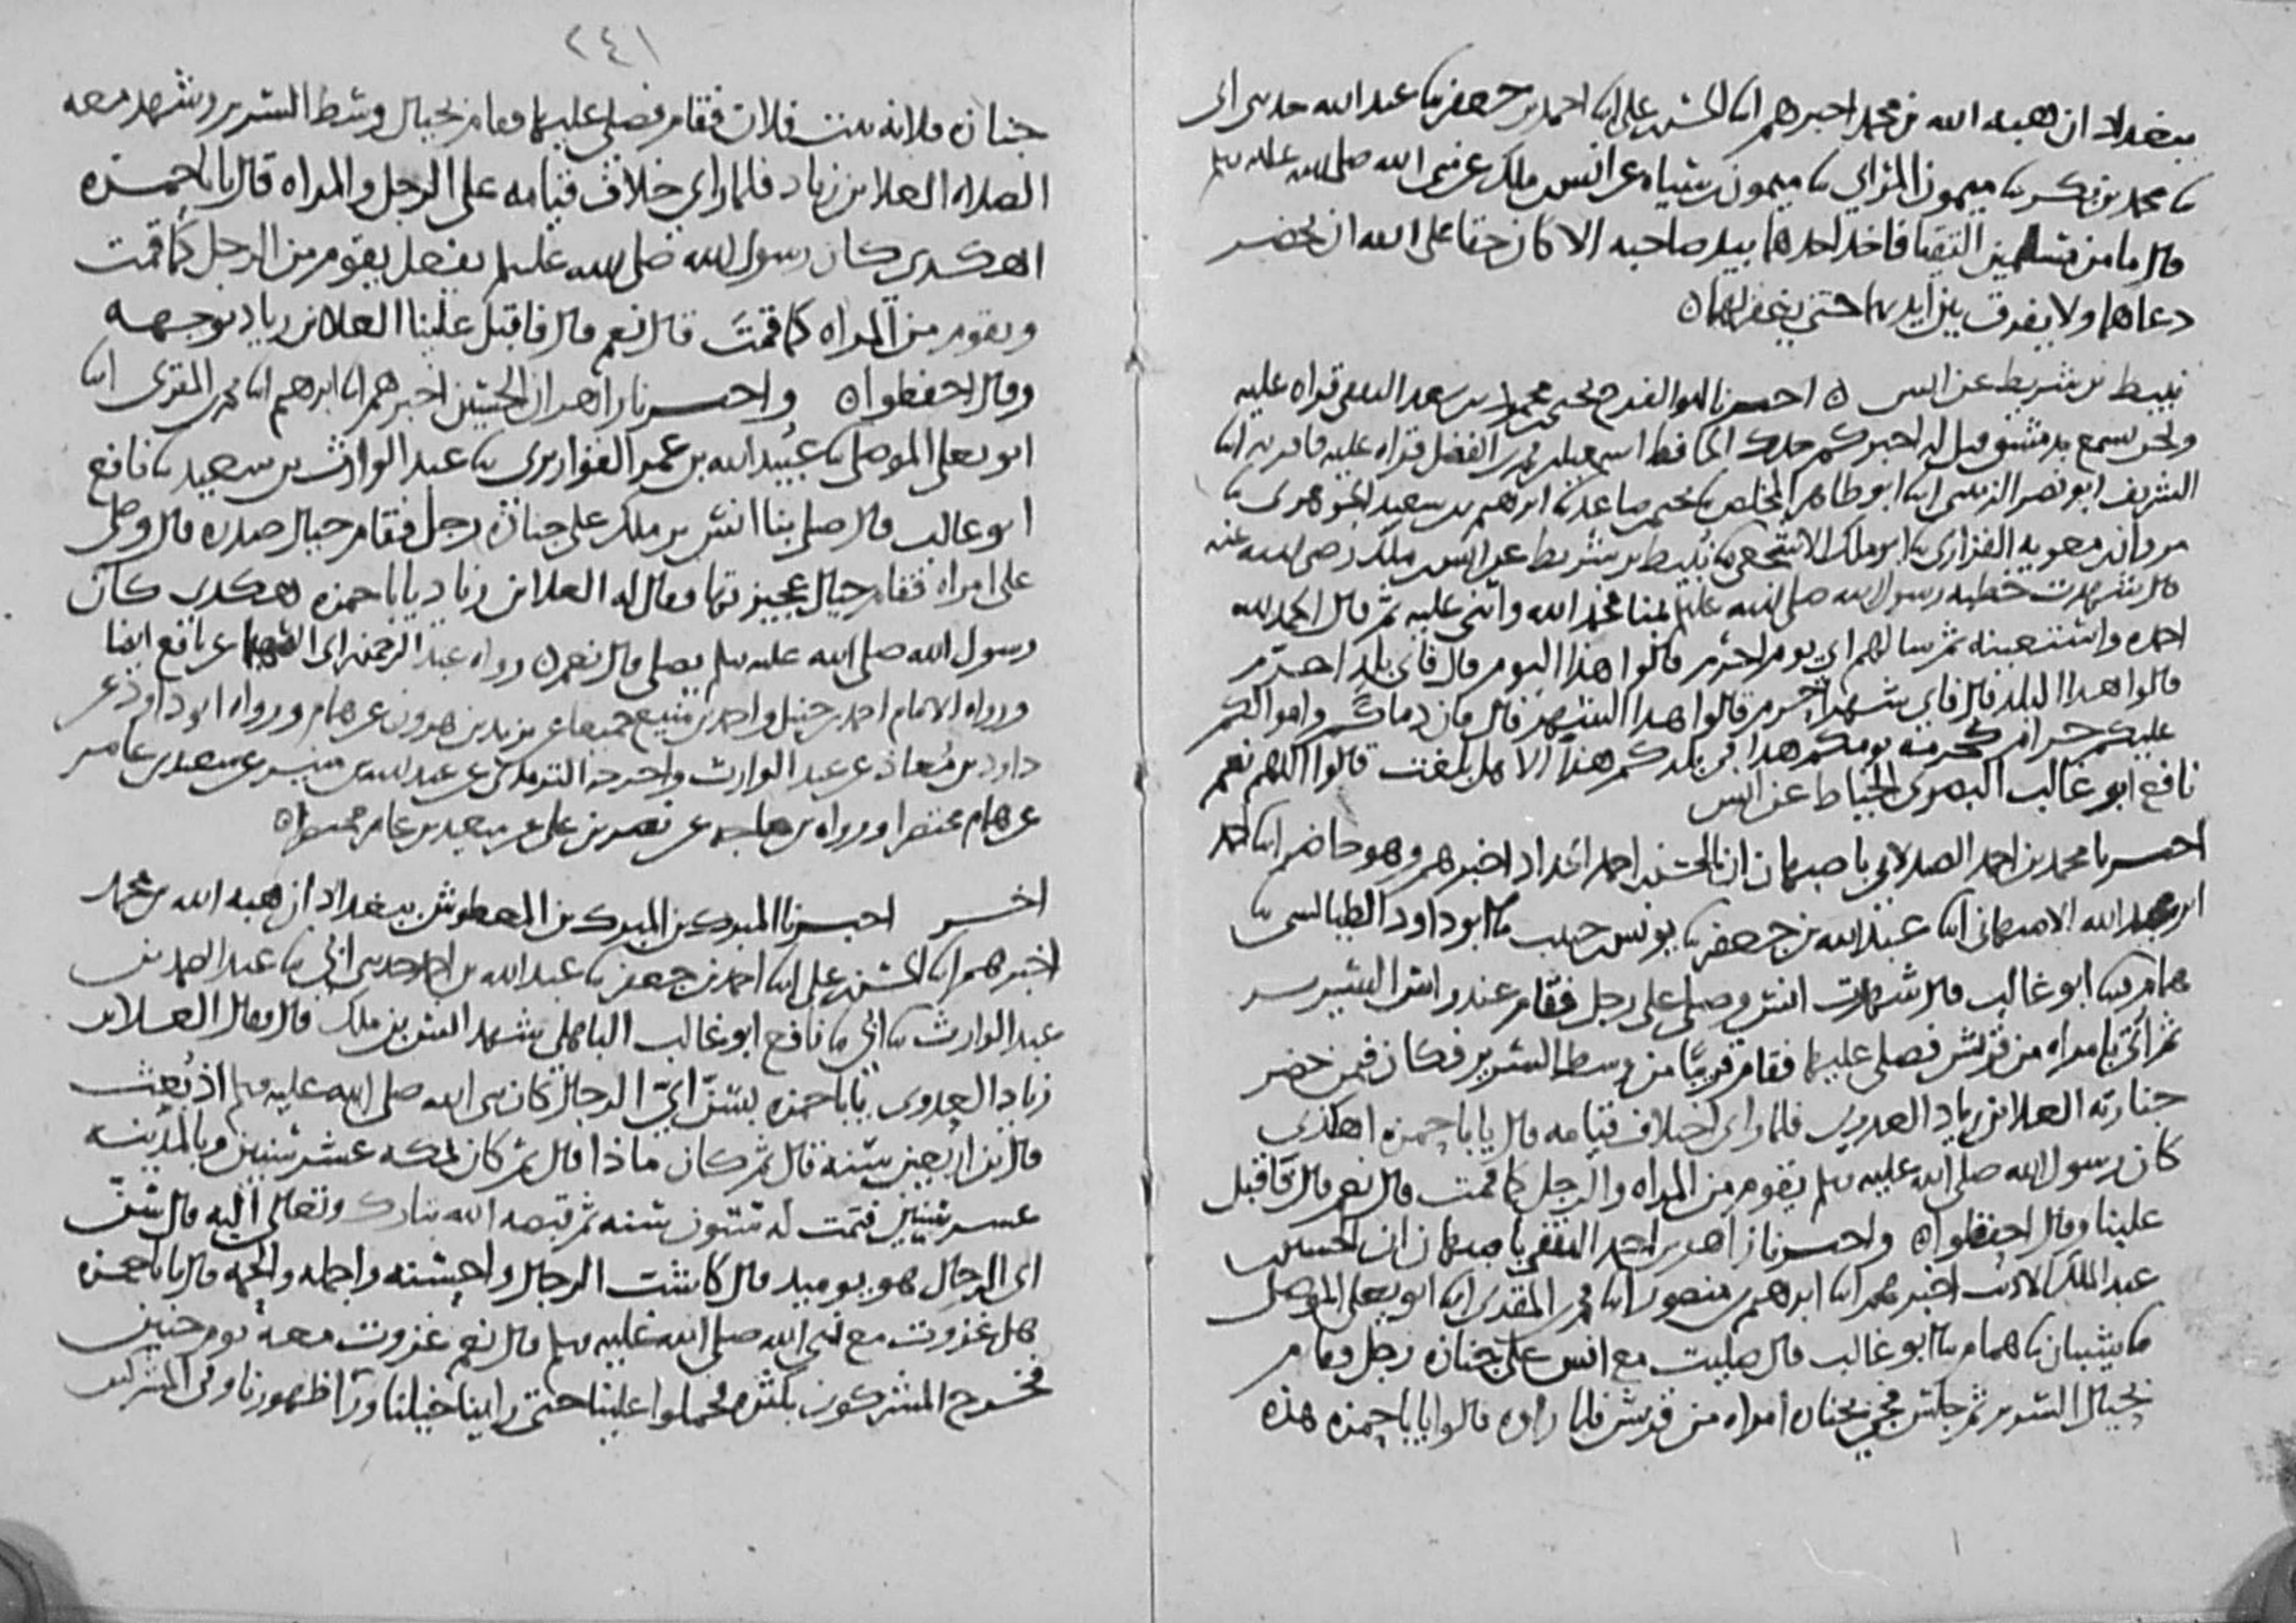 ببغداد ان هبه الله بن محمد اخبرهم ابنا الحسن بن علي ابنا احمد بن جعفر ثنا عبد الله حدثني ابي
ثنا محمد بن بكر ثنا ميمون المزاي ثنا ميمون بن سياه عن انس بن ملك عن نبي الله صلى الله عليه وسلم
قال ما من مسلمين التقيا فاخذ احدهما بيد صاحبه الا كان حقا على الله ان يحضر
دعاهما ولا يفرق بين ايديهما حتى يغفر لهما ه
نبيط بن شريط عن انس ه اخبرنا ابو الفرج يحيى بن محمود بن سعد الثقفي قراه عليه
ونحن نسمع بدمشق قيل له اخبركم جدك الحافظ اسمعيل بن محمد بن الفضل قراه عليه فاقر به ابنا
الشريف ابو نصر الزينبي ابنا ابو طاهر المخلص ثنا يحيى بن صاعد ثنا ابرهيم بن سعيد الجوهري ثنا
مروان بن معويه الفزاري ثنا ابو ملك الاشجعي ثنا نبيط بن شريط عن انس بن ملك رضي الله عنه
قال شهدت خطبه رسول الله صلى الله عليه وسلم بمنا فحمد الله واثنى عليه ثم قال الحمد لله
احمده واستعينه ثم سالهم اي يوم احرم قالوا هذا اليوم قال فاي بلد احرم
قالوا هذا البلد قال فاي شهر احرم قالوا هذا الشهر قال فان دماكم واموالكم
عليكم حرام كحرمه يومكم هذا في بلدكم هذا الا هل بلغت قالوا اللهم نعم
نافع ابو غالب البصري الخياط عن انس
اخبرنا محمد بن احمد الصيدلاني باصبهان ان ابا الحسن بن احمد الحداد اخبرهم وهو حاضر ابنا احمد
ابن عبد الله الاصبهاني ابنا عبد الله بن جعفر ثنا يونس بن حبيب ثنا ابو داود الطيالسي ثنا
همام ثنا ابو غالب قال شهدت انس وصلى على رجل فقام عند راس السرير
ثم اتي بامراه من قريش فصلى عليها فقام قريبا من وسط السرير فكان فيمن حضر
جنازته العلا بن زياد العدوي فلما راى اختلاف قيامه قال يا با حمزه اهكذى
كان رسول الله صلى الله عليه وسلم يقوم من المراه والرجل كما قمت قال نعم قال فاقبل
علينا وقال احفظوا ه واخبرنا زاهر بن احمد الثقفي باصبهان ان الحسين بن
عبد الملك الاديب اخبرهم ابنا ابرهيم بن منصور ابنا محمد بن المقرى ابنا ابو يعلى الموصلي
ثنا شيبان ثنا همام ثنا ابو غالب قال صليت مع انس على جنازه رجل وقام
بحيال السرير ثم جلس فجي بجنازه امراه من قريش فلما راوه قالوا يا با حمزه هذه
٢٤١
جنازه فلانه بنت فلان فقام فصلى عليها فقام بحيال وسط السرير وشهد معه
الصلاه العلا بن زياد فلما راى خلاف قيامه على الرجل والمراه قال يا با حمزه
اهكدى كان رسول الله صلى الله عليه وسلم يفعل يقوم من الرجل كما قمت
ويقوم من المراه كما قمت قال نعم قال فاقبل علينا العلا بن زياد بوجهه
وقال احفظوا ه واخبرنا زاهر ان الحسين اخبرهم ابنا ابرهيم ابنا محمد بن المقرى ابنا
ابو يعلى الموصلي ثنا عبيد الله بن عمر القواريري ثنا عبد الوارث بن سعيد ثنا نافع
ابو غالب قال صلى بنا انس بن ملك على جنازه رجل فقام حيال صدره قال وصلى
على امراه فقام حيال عجيزتها وقال له العلا بن زياد يا با حمزه هكدى كان
رسول الله صلى الله عليه وسلم يصلي قال نعم ه رواه عبد الرحمن بن ابي الصهبا عن نافع ايضا
ورواه الامام احمد بن حنبل واحمد بن منيع جميعا عن يزيد بن هرون عن همام ورواه ابو داود عن
داود بن معاذ عن عبد الوارث واخرجه الترمذي عن عبد الله بن منير عن سعيد بن عامر
عن همام مختصرا ورواه بن ماجه عن نصر بن علي عن سعيد بن عامر مختصرا ه
اخر اخبرنا المبارك بن المبارك بن المعطوش ببغداد ان هبه الله بن محمد
اخبرهم ابنا الحسن بن علي ابنا احمد بن جعفر ثنا عبد الله بن احمد حدثني ابي ثنا عبد الصمد بن
عبد الوارث ثنا ابي ثنا نافع ابو غالب الباهلي شهد انس بن ملك قال فقال العلا بن
زياد العدوي يا با حمزه بسن اي الرجال كان نبي الله صلى الله عليه وسلم اذ بعث
قال بن اربعين سنه قال ثم كان ماذا قال ثم كان بمكه عشر سنين وبالمدينه
عشر سنين فتمت له ستون سنه ثم قبضه الله تبارك وتعالى اليه قال سن
اي الرجال هو يوميد قال كاشب الرجال واحسنه واجمله والحمه قال يا با حمزه
هل غزوت مع نبي الله صلى الله عليه وسلم قال نعم غزوت معه يوم حنين
فخرج المشركون بكثره فحملوا علينا حتى راينا خيلنا ورا ظهورنا وفي المشركين